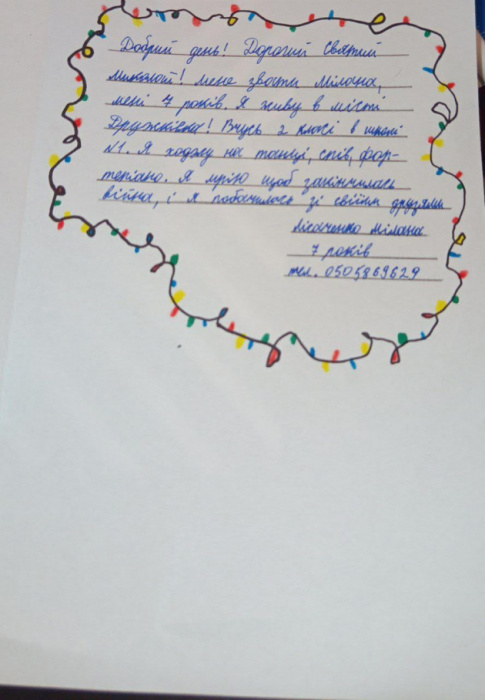 Добрий день! Дорогий Святий
Миколай! мене звати Мілана,
мені 7 років. Я живу в місті
Дружківка! Вчусь 2 класі в школі
№1. Я ходжу на танці, спів, фор-
тепіано. Я мрію щоб закінчилась
війна, і я побачилась зі своїми друзями
Лісаченко Мілана
7 років
тел. 0505869629